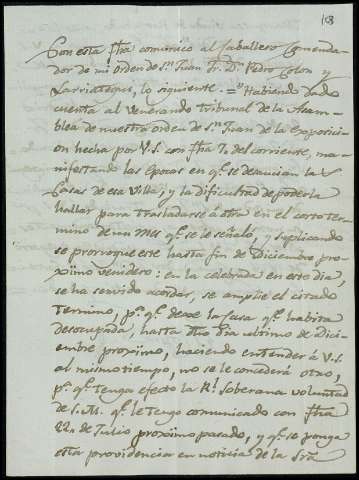 103
Con esta fha comunico al Caballero Comenda-
dor de mi orden de Sn Juan Fr. Dn Pedro Colon y
Larriategui, lo siguiente. = "Habiendo dado
cuenta al venerando Tribunal de la Asam-
blea de nuestra orden de Sn Juan de la exposicion
hecha por V.S. con fha 7. del corriente, ma-
nifestando las Epocas en qe. se desaucian las
Casas de esa Villa; y la dificultad de poderla
hallar para trasladarse á otra en el corto ter-
mino de un mes qe. se le señaló, y suplicando
se prorrogue este hasta fin de Diciembre pro-
xîmo venidero: en la celebrada en este dia,
se ha servido acordar, se amplie el citado
termino, pa. qe. dexe la Casa qe. habita
desocupada, hasta dho dia ultimo de Dici-
embre proxîmo, haciendo entender á V.S.
al mismo tiempo, no se le concederá otro,
pa. qe. tenga efecto la Rl. Soberana voluntad
de S.M. qe. le tengo comunicado con fha
22,, de Julio proxîmo pasado, y qe. se ponga
esta providencia en noticia de la Sra